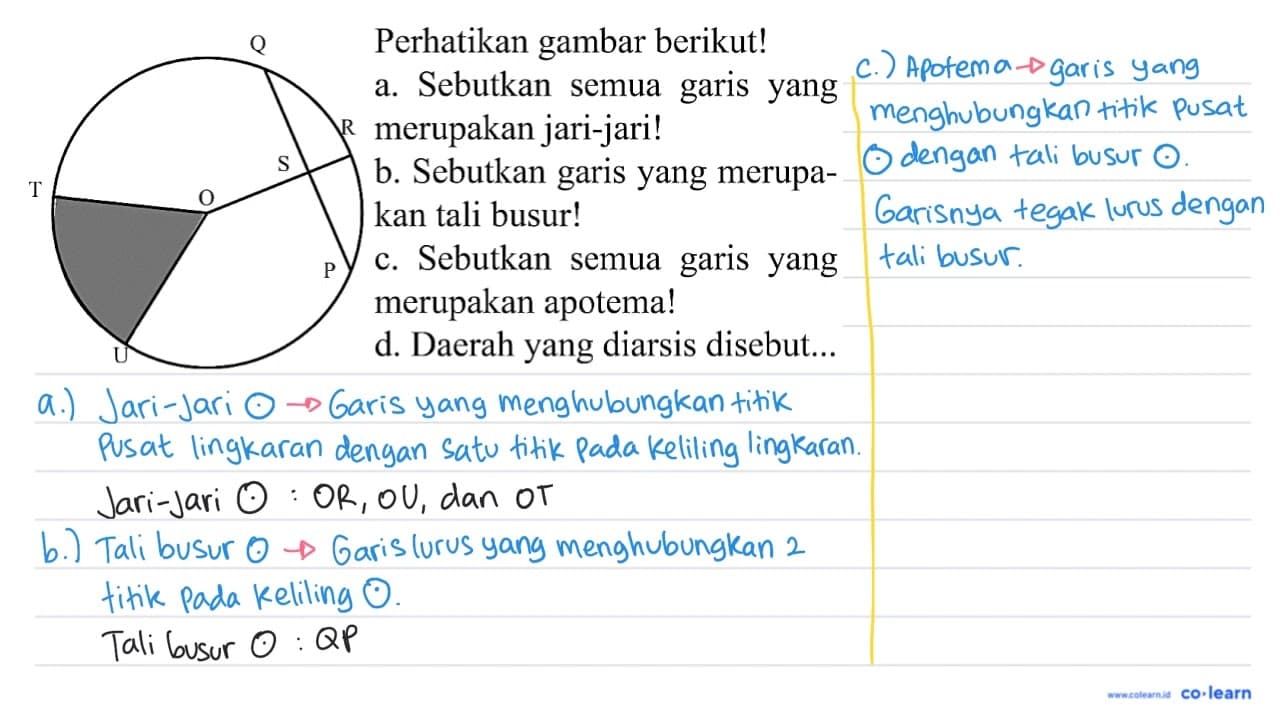 Q
R
S
T
O
P
U
Perhatikan gambar berikut!
a. Sebutkan semua garis yang
merupakan jari-jari!
b. Sebutkan garis yang merupa-
kan tali busur!
c. Sebutkan semua garis yang
merupakan apotema!
d. Daerah yang diarsis disebut...
a.) Jari-Jari ⊙ → Garis yang menghubungkan titik
Pusat lingkaran dengan satu titik Pada Keliling lingkaran.
Jari-Jari ⊙ : OR, OU, dan OT
b.) Tali busur ⊙ → Garis lurus yang menghubungkan 2
titik Pada Keliling ⊙.
Tali busur ⊙ : QP
c.) Apotema → garis yang
menghubungkan titik Pusat
⊙ dengan tali busur ⊙.
Garisnya tegak lurus dengan
tali busur.
www.colearn.id co·learn